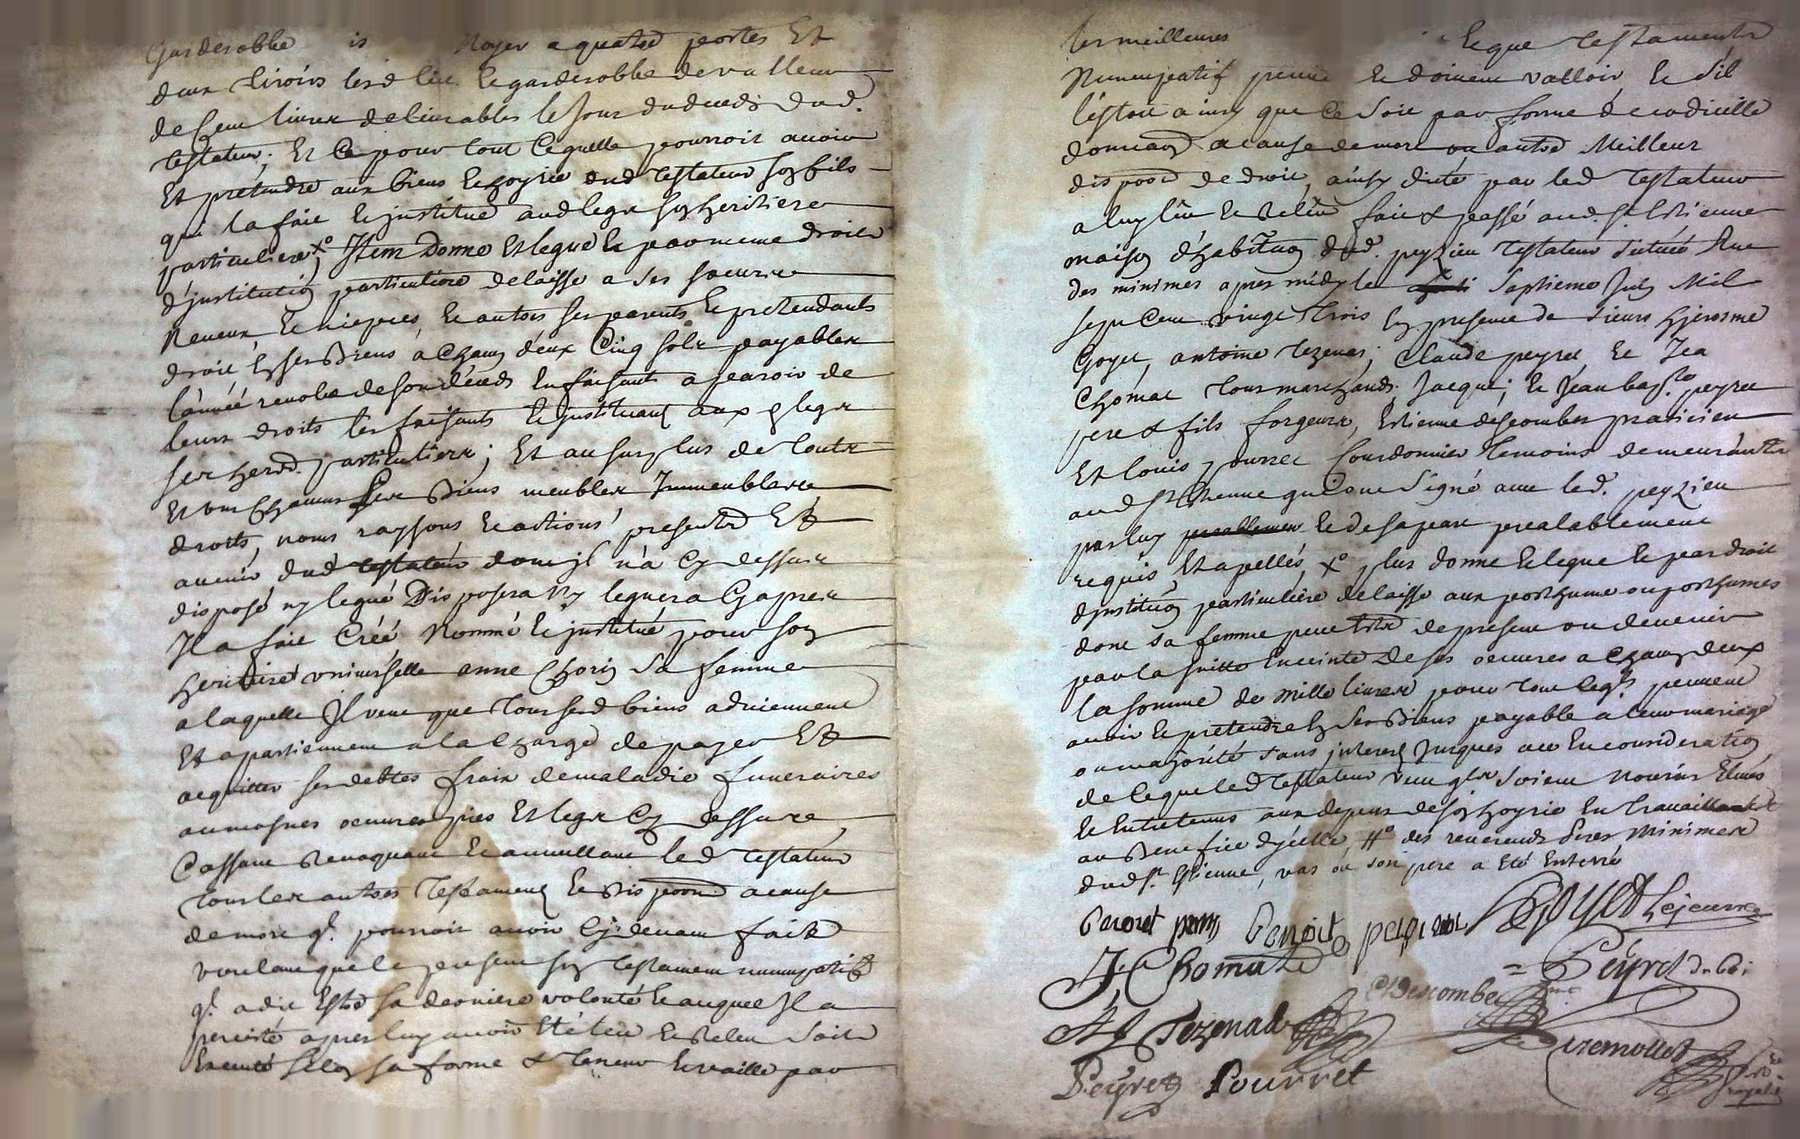 Garderobbe is Noyer a quatre portes Et
deux tiroirs lesd lin le garderobbe de valleur
de Cent livres delivrables le Jour dudeceds dud.
testateur, Et Ce pour tout Ce quelle pourroit avoir
Et prétendre aux biens Et hoyrie dud testateur son fils
qui la fait Et justitue aud legs son heritiere
particuliere x° Item Donne Et legue Et par meme droit
d'justitution particuliere delaisse a ses soeurs
Neveux, Et niepces, Et autres ses parents Et pretendants
droit En ses Biens a Chacun d'eux Cinq sols payables
l'année revolue de son déceds En faisant aparoir de
leurs droits les faisants Et justituant aux legs
ses herd. particuliers; Et au surplus de touts
Et uns Chacuns Ses Biens meubles Immeubles
droits, noms raysons Et actions presents Et
avenir dud testateur dont jl n'á Cy dessus
disposé ny legué Disposera Ny leguera Cy apres
Jl a fait Créé Nommé Et justitué pour son
heritiere universelle anne Chorin Sa femme
a laquelle Jl veut que tous sesd biens adviennent
Et apartiennent a la Charge de payer Et
acquitter ses debtes fraix de maladie funeraires
aumosnes oeuvres pies Et legs Cy dessus
Cassant Revoquant Et annullant led testateur
tous les autres Testament Et Dispoon. a cause
de mort q. pourroit avoir Cy devant faits
voulant que le present son testament nuncupatif
q. a dit Estre sa derniere volonté Et auquel Jl a
persisté apres luy avoir Eté leu Et Releu soit
Executé selon sa forme & teneur Et vaille par
les meilleures Et que testament
Nuncupatif peuvent Et doivent valloir Et s'il
l'estoit ainsy que Ce soit par forme de codicille
donnation a cause de mort ou autre Meilleur
dispoon de droit, ainsy dicté par led Testateur
a luy leu Et Releu fait & passé aud. St. Estienne
maison d'habitaon dud. peyzieu testateur Située Rue
des minimes apres midy le Septieme July Mil
sept Cent vingt trois En presence de sieurs Hjerosme
Goyet, antoine tezenas, Claude peyret Et Jea
Chomat tous marchands, Jacques, Et Jean bapte. peyret
pere & fils forgeurs, Estienne descombes praticien
Et Louis pourret Courdonnier temoins demeurants
aud St. Etienne qui ont Signé avec led. peyzieu
par luy prealablement Et de sa part prealablement
requis, Et apellés, x° plus donne Et legue Et par droit
d'justituon particuliére delaisse aux posthume ou posthumes
dont sa femme peut Estre de present ou devenir
par la suitte Enceinte de ses oeuvres a Chacun deux
la somme de mille livres pour tout Ce q. peuvent
avoir Et pretendre En Ses Biens payable a leur mariage
ou majorité sans jnterest Jusques a ce En consideration
de Ce que led Testateur veut q.ls soient Nourris Elevés
Et Entretenus aux depens de son hoyrie En travaillant
au Benefice d'jcelle, #° des reverends Peres Minimes
dud St. Estienne, vas où son pere a Eté Enterré
Benoit GOYET Lejeune
J. Chomat Peyret
C Descombes
A Tezenas
Peyret Pourret